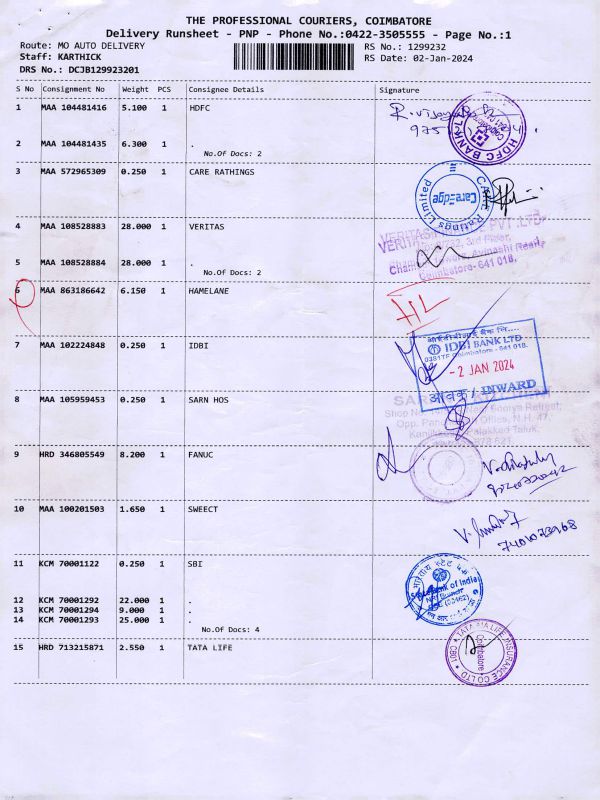 THE PROFESSIONAL COURIERS, COIMBATORE
Delivery Runsheet - PNP - Phone No.:0422-3505555 - Page No.:1
Route: MO AUTO DELIVERY RS No.: 1299232
Staff: KARTHICK RS Date: 02-Jan-2024
DRS No.: DCJB129923201
S No Consignment No Weight PCS Consignee Details Signature
1 MAA 104481416 5.100 1 HDFC
975
HDFC BANK L
2 MAA 104481435 6.300 1 .
No.Of Docs: 2
3 MAA 572965309 0.250 1 CARE RATHINGS
CARE Ratings Limited
CareEdge
4 MAA 108528883 28.000 1 VERITAS
VERITAS PVT .LTD
3rd Floor,
Avinashi Road,
Coimbatore- 641 018.
5 MAA 108528884 28.000 1 .
No.Of Docs: 2
6 MAA 863186642 6.150 1 HAMELANE
7 MAA 102224848 0.250 1 IDBI
IDBI BANK LTD
Coimbatore - 641 018.
- 2 JAN 2024
आवक / INWARD
8 MAA 105959453 0.250 1 SARN HOS
9 HRD 346805549 8.200 1 FANUC
10 MAA 100201503 1.650 1 SWEECT
11 KCM 70001122 0.250 1 SBI
Bank of India
12 KCM 70001292 22.000 1 .
13 KCM 70001294 9.000 1 .
14 KCM 70001293 25.000 1 .
No.Of Docs: 4
15 HRD 713215871 2.550 1 TATA LIFE
TATA AIA LIFE INSURANCE CO LTD
Coimbatore
CB01